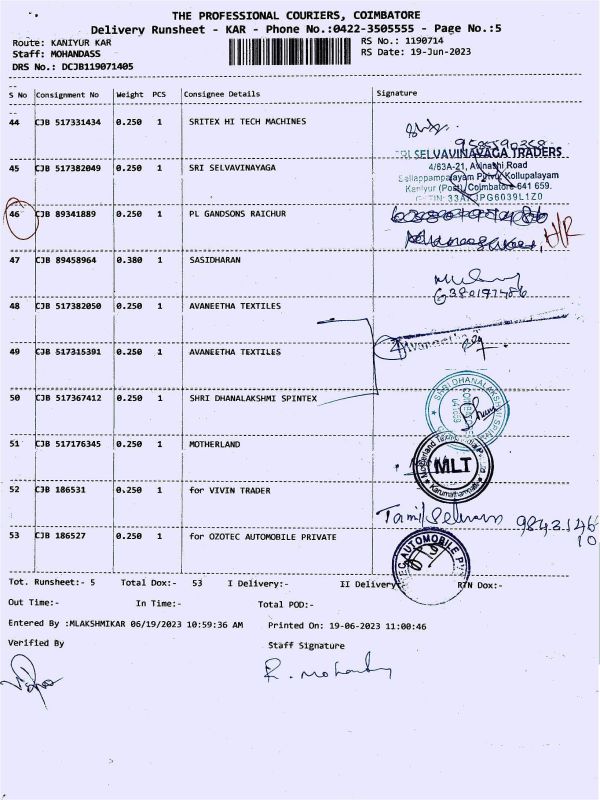 THE PROFESSIONAL COURIERS, COIMBATORE
Delivery Runsheet - KAR - Phone No.:0422-3505555 - Page No.:5
Route: KANIYUR KAR
RS No.: 1190714
Staff: MOHANDASS
RS Date: 19-Jun-2023
DRS No.: DCJB119071405
S No Consignment No Weight PCS Consignee Details Signature
44 CJB 517331434 0.250 1 SRITEX HI TECH MACHINES
45 CJB 517382049 0.250 1 SRI SELVAVINAYAGA
SRI SELVAVINAYAGA TRADERS
4/63A-21, Avinashi Road
Sellappampalayam Pirivu, Kollupalayam
Kaniyur (Post), Coimbatore-641 659.
46 CJB 89341889 0.250 1 PL GANDSONS RAICHUR
H/R
47 CJB 89458964 0.380 1 SASIDHARAN
48 CJB 517382050 0.250 1 AVANEETHA TEXTILES
49 CJB 517315391 0.250 1 AVANEETHA TEXTILES
Avaneetha
50 CJB 517367412 0.250 1 SHRI DHANALAKSHMI SPINTEX
SHRI DHANALAKSHMI SPIN
51 CJB 517176345 0.250 1 MOTHERLAND
MLT
52 CJB 186531 0.250 1 for VIVIN TRADER
Tamil Selvam 9843146
10
53 CJB 186527 0.250 1 for OZOTEC AUTOMOBILE PRIVATE
AUTOMOBILE
Tot. Runsheet:- 5 Total Dox:- 53 I Delivery:- II Delivery RTN Dox:-
Out Time:- In Time:- Total POD:-
Entered By :MLAKSHMIKAR 06/19/2023 10:59:36 AM Printed On: 19-06-2023 11:00:46
Verified By Staff Signature
R. Mohandas